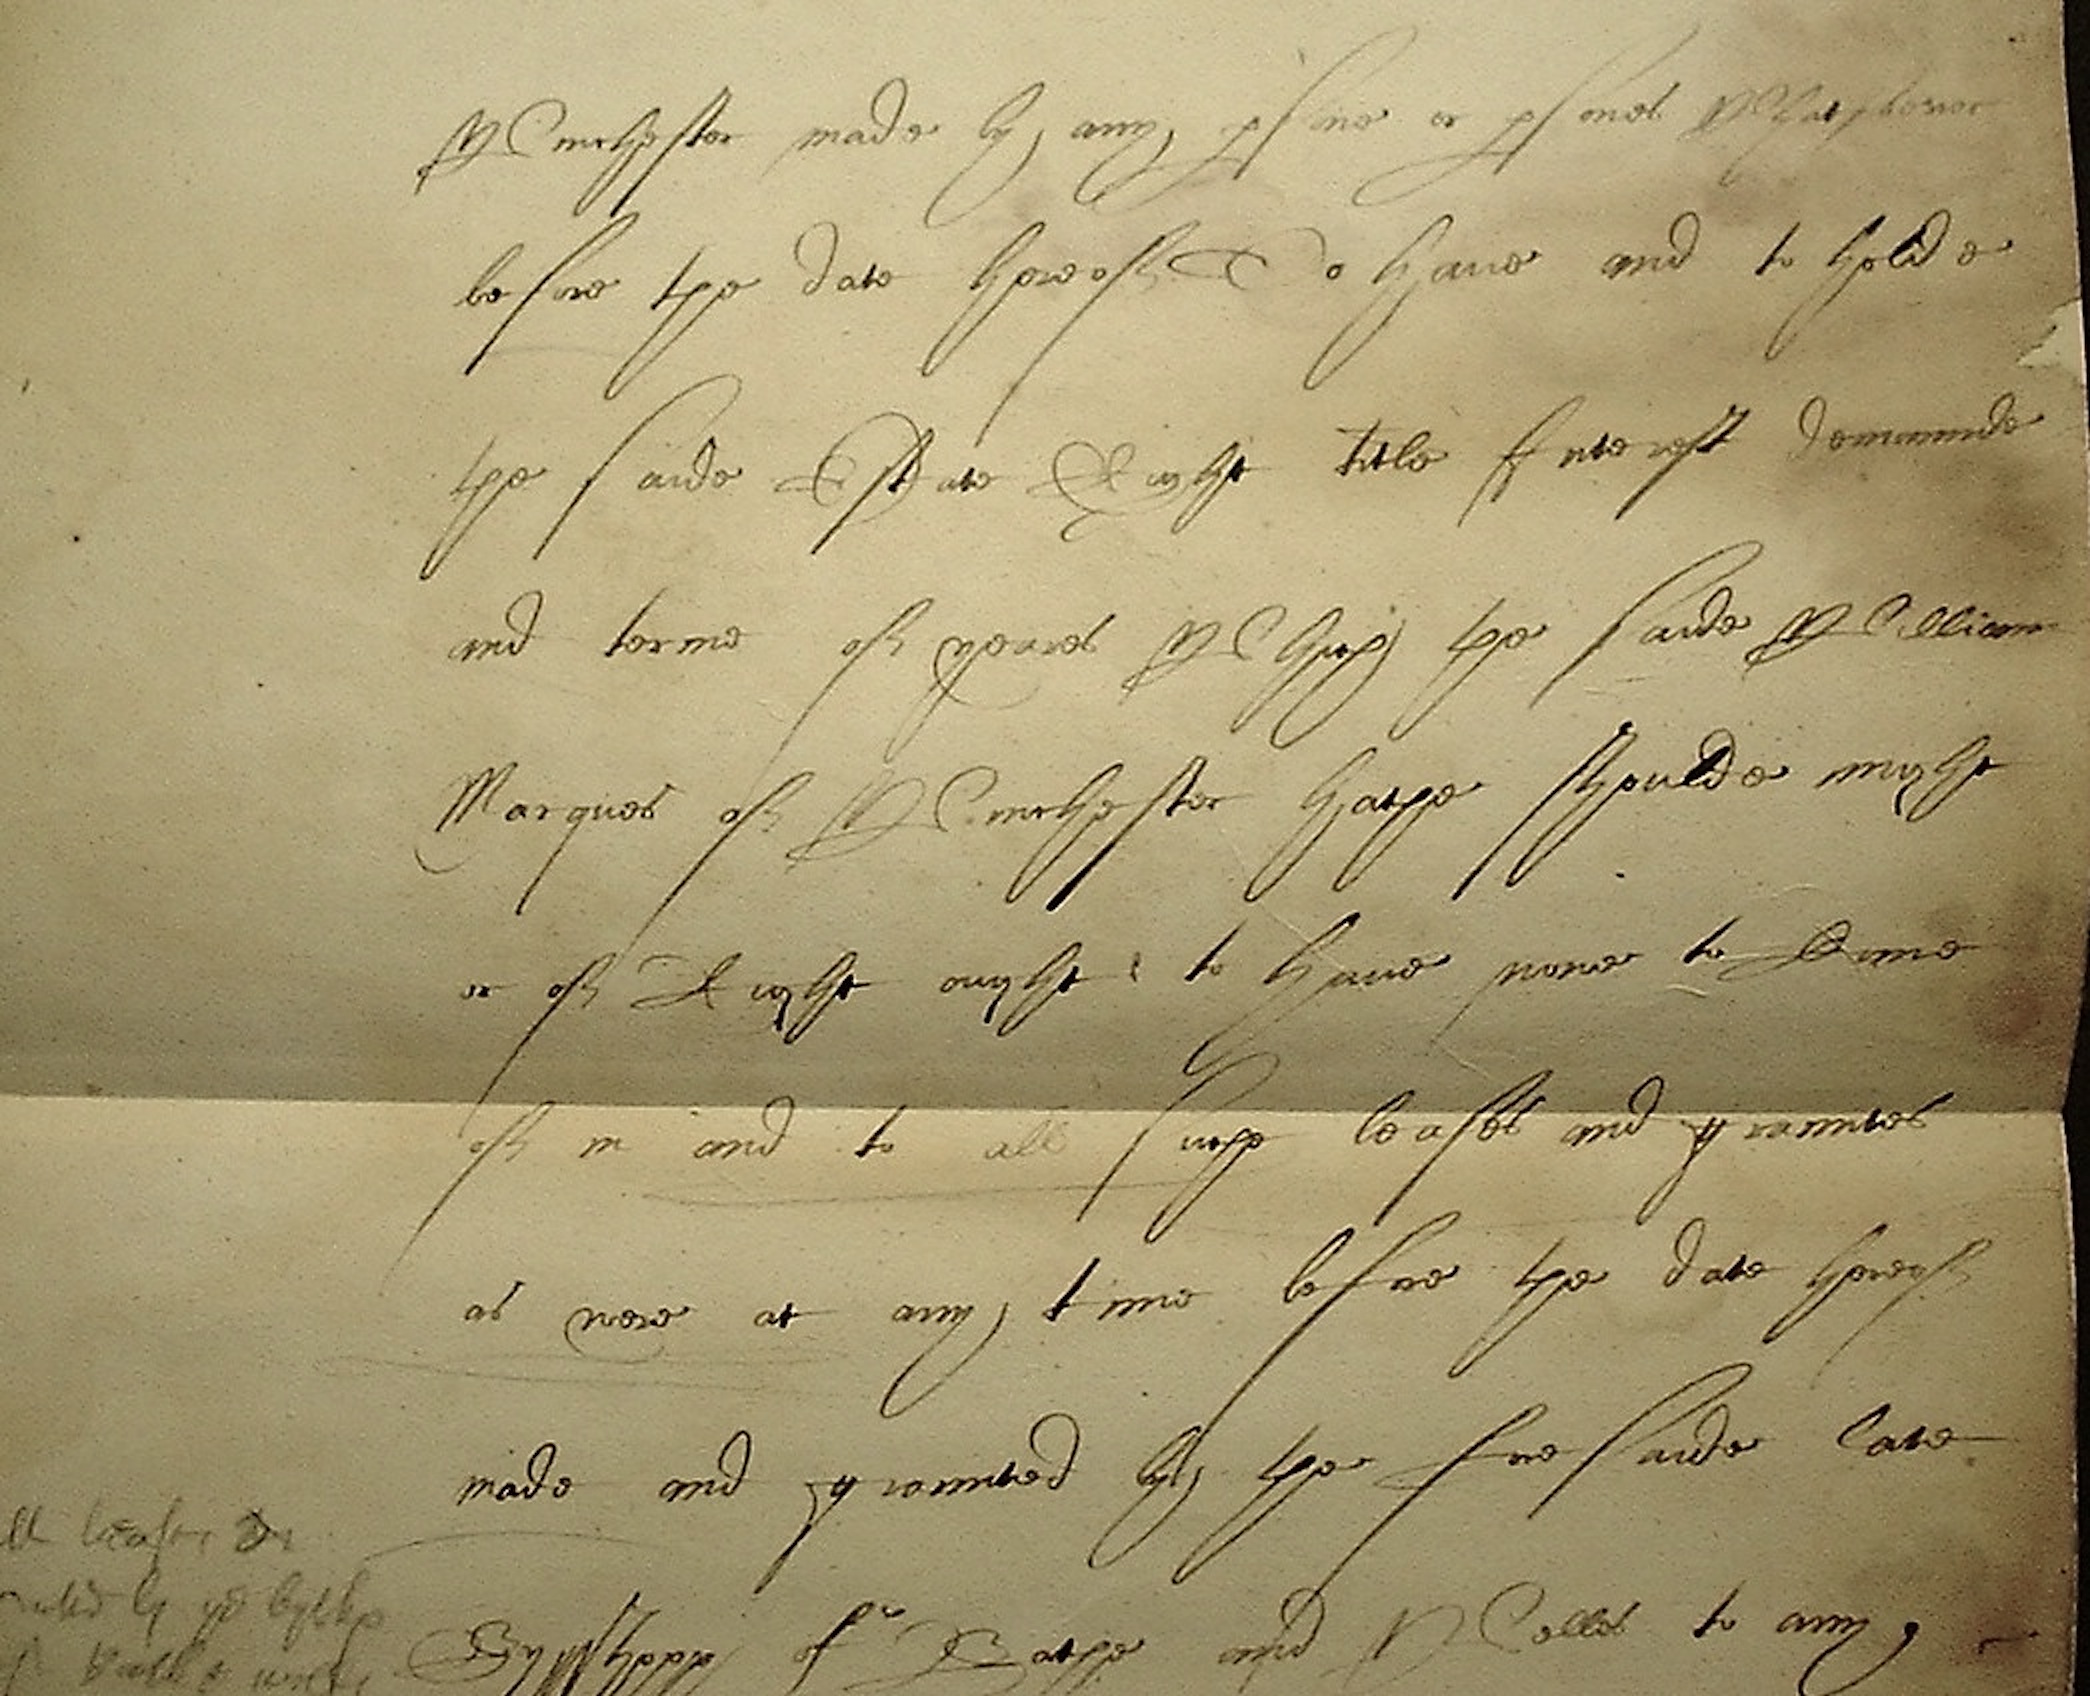 Winchester made by any psone or psones Whatsoever
before the date hereof To have and to holde
the saide Estate Right title Interest demaunde
and terme of yeares Which the saide William
Marques of Winchester hathe shoulde might
or of Right ought to have nowe to Come
of in and to all suche leases and grauntes
as were at any time before the date hereof
made and graunted by the foresaide late
Bysshopp of Bathe and Welles to any
leases
by ye